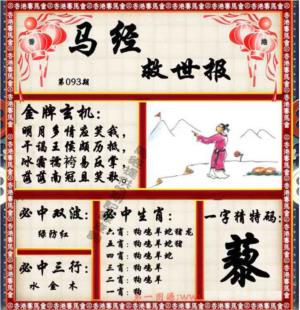 香 港
马经
救世报
第093期
金牌玄机:
明月多情应笑我,
干谒王侯颇历抵,
冰霜襦袴易反掌,
茵茵南冠且笑歌
必中双波:
绿防红
必中三行:
水 金 木
必中生肖:
六肖:狗鸡羊蛇猪龙
五肖:狗鸡羊蛇猪
四肖:狗鸡羊蛇
三肖:狗鸡羊
二肖:狗鸡
一肖:狗
一字猜特码:
藜